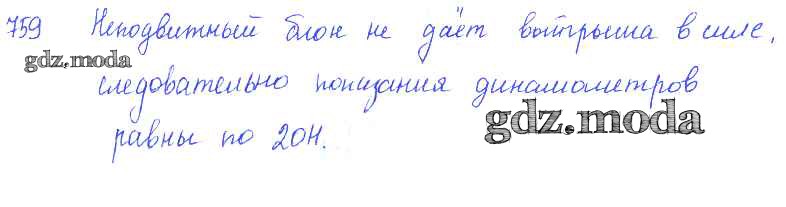 759 Неподвижный блок не даёт выигрыша в силе,
gdz.moda
следовательно показания динамометров
gdz.moda
равны по 20Н.